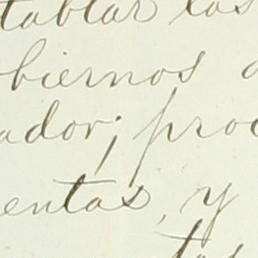 tablar los
biernos
ador; proc
entas, y
tas